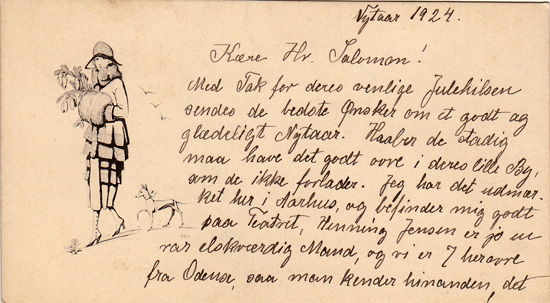 Nytaar 1924.
Kære Hr. Salomon!
Med Tak for deres venlige Julehilsen
sendes de bedste Ønsker om et godt og
glædeligt Nytaar. Haaber de stadig
maa have det godt ovre i deres lille By,
om de ikke forlader. Jeg har det udmær-
ket her i Aarhus, og befinder mig godt
paa Teatret, Henning Jensen er jo en
rar elskværdig Mand, og vi er 7 herovre
fra Odense, saa man kender hinanden, det